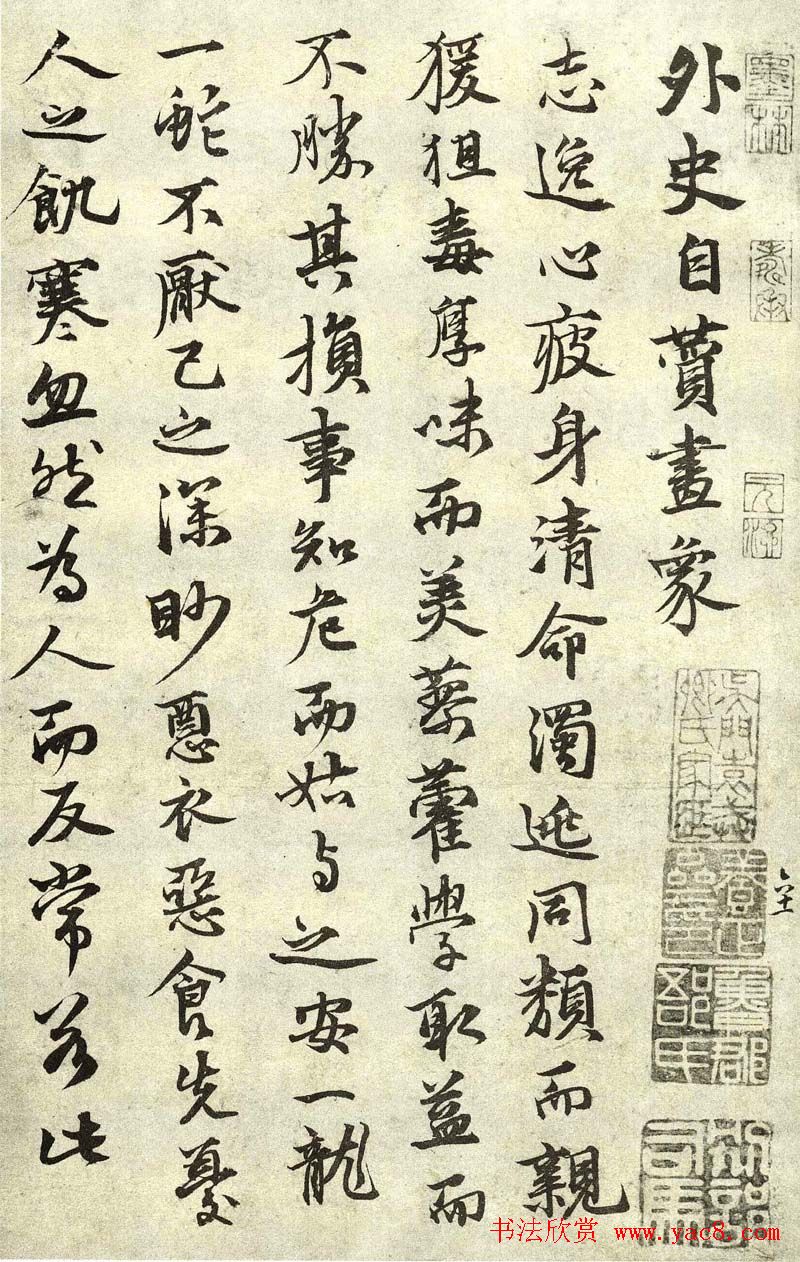 外史自賛畫象
志逸心疲身清命濁逃同類而親
猨狙毒厚味而美藜藿學取益而
不勝其損事知危而姑与之安一龍
一蛇不厭己之深眇惡衣惡食先憂
人之飢寒忽然為人而反常若此
墨林
书法欣赏 www.yac8.com